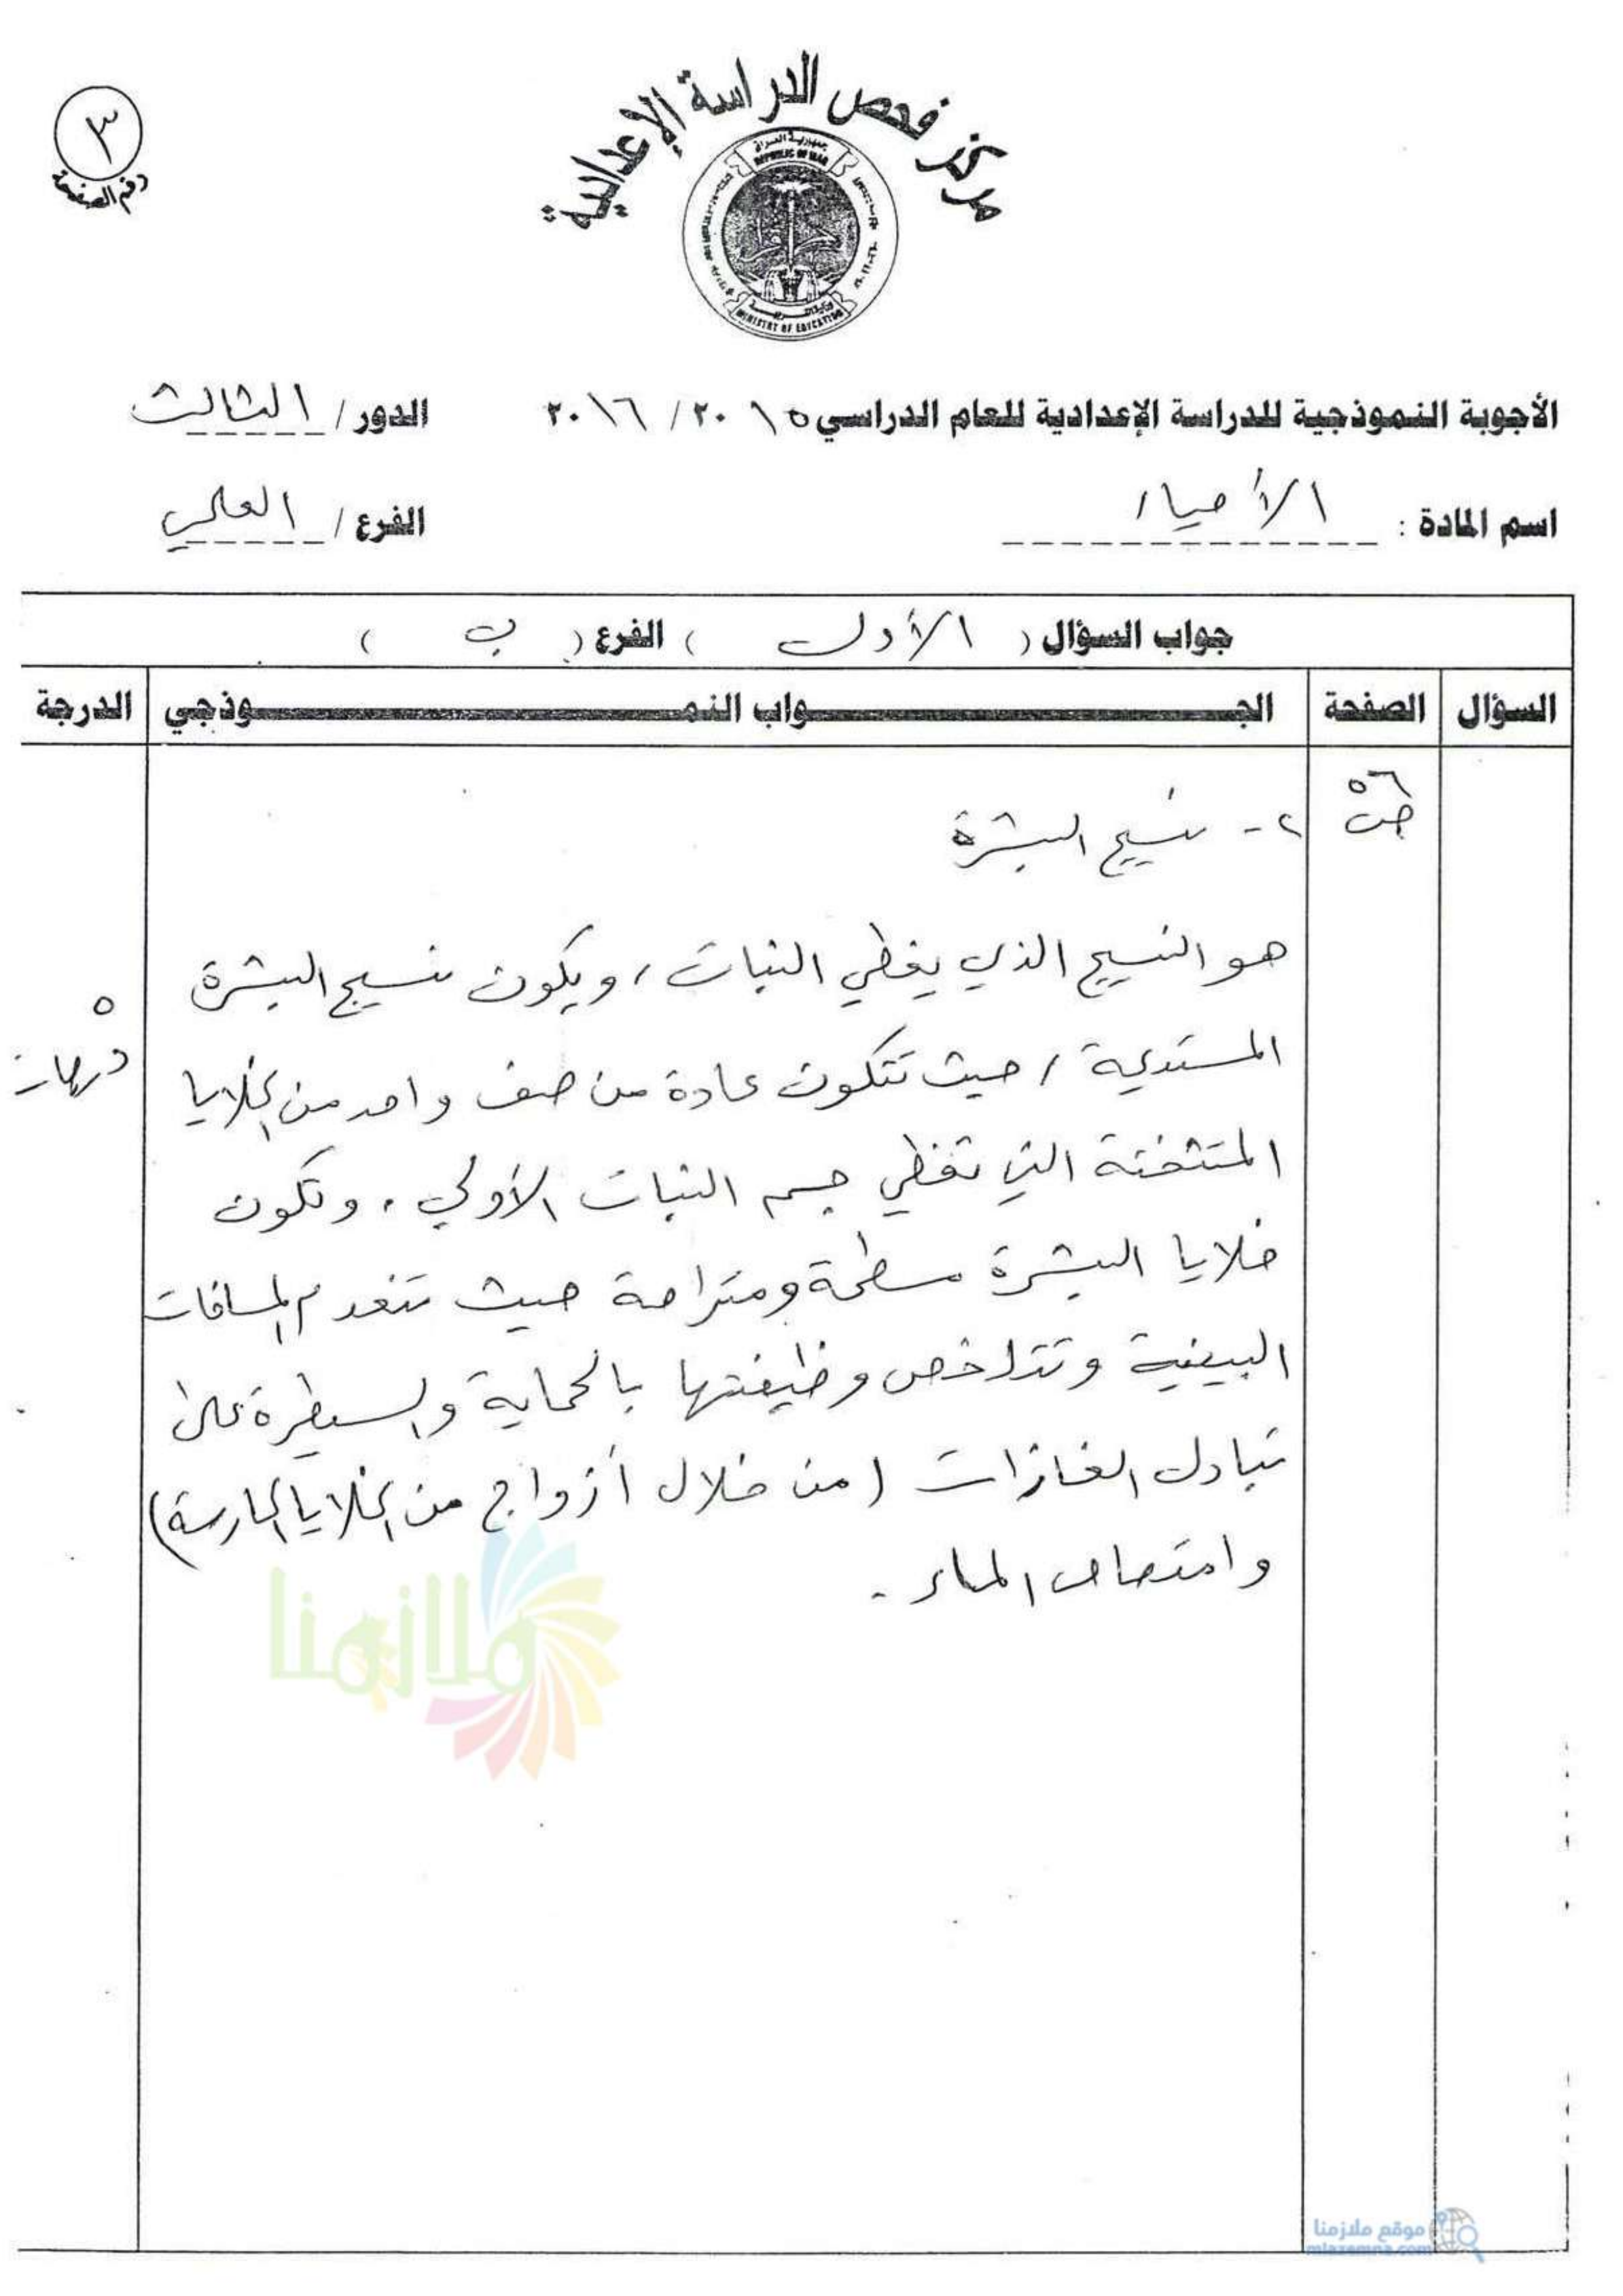 مركز فحص الدراسة الإعدادية
جمهورية العراق
REPUBLIC OF IRAQ
وزارة التربية
MINISTRY OF EDUCATION
٣
رقم الصفحة
الأجوبة النموذجية للدراسة الإعدادية للعام الدراسي ٢٠١٥ / ٢٠١٦ الدور / الثالث
اسم المادة : الأحياء الفرع / العلمي
جواب السؤال ( الأول ) الفرع ( ب )
السؤال الصفحة الجـــواب النمـــوذجي الدرجة
ص ٥٦
٢- نسيج البشرة
هو النسيج الذي يغطي النبات ، ويكون نسيج البشرة
المستديمة ، حيث تتكون عادة من صف واحد من الخلايا
المتثخنة التي تغطي جسم النبات الأولي . وتكون
خلايا البشرة مسطحة ومتراصة حيث تنعدم المسافات
البينية وتتلخص وظيفتها بالحماية والسيطرة على
تبادل الغازات ( من خلال أزواج من الخلايا الحارسة )
وامتصاص الماء .
٥
درجات
ملازمنا
موقع ملازمنا
mlazemna.com